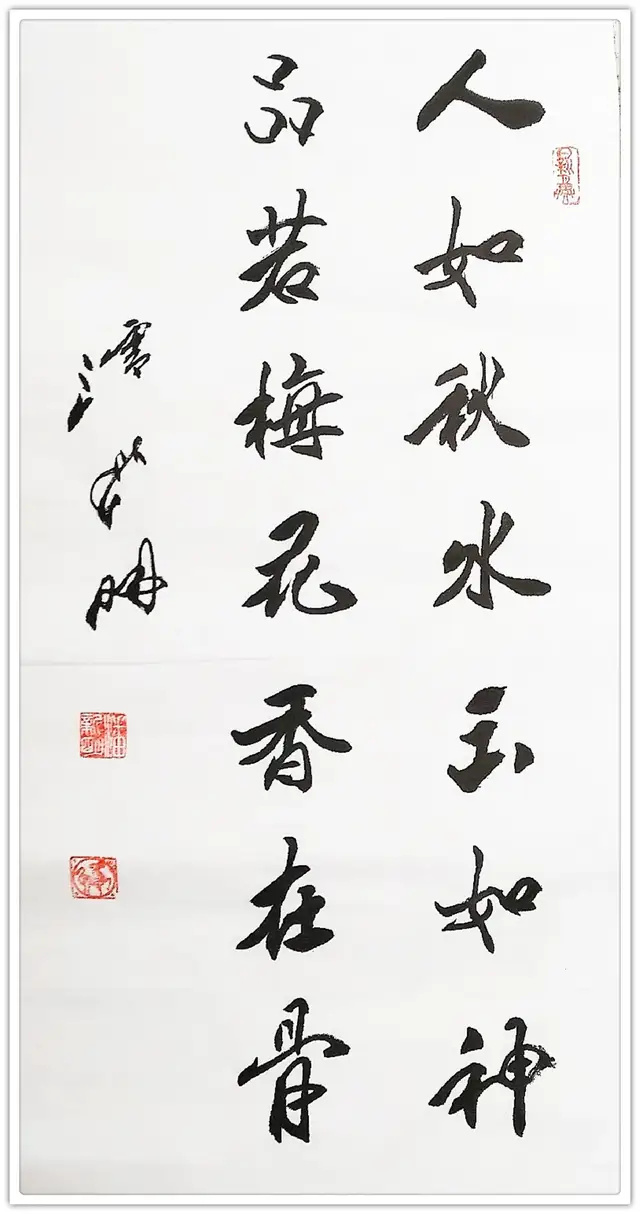 人如秋水玉如神
品若梅花香在骨